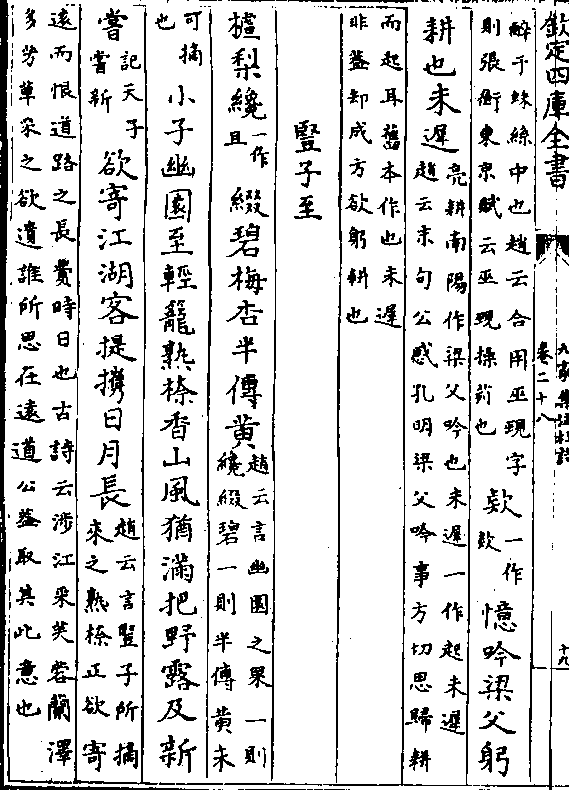 欽定四庫全書
九家集注杜詩
卷二十八
十九
醉于蛛絲中也趙云合用巫現字
則張衡東京賦云巫現操茢也
欵一作
欸
憶吟梁父躬
耕也未遲
亮耕南陽作梁父吟也未遲一作起未遲
趙云末句公感孔明梁父吟事方切思歸耕
而起耳舊本作也未遲
非蓋却成方欲躬耕也
豎子至
樝梨纔
一作
且
綴碧梅杏半傳黃
趙云言幽園之果一則
纔綴碧一則半傳黃未
可摘
也
小子幽園至輕籠熟㮈香山風猶滿把野露及新
嘗
記天子
嘗新
欲寄江湖客提攜日月長
趙云言豎子所摘
來之熟㮈正欲寄
遠而恨道路之長費時日也古詩云涉江采芙蓉蘭澤
多芳草采之欲遺誰所思在遠道公蓋取其此意也